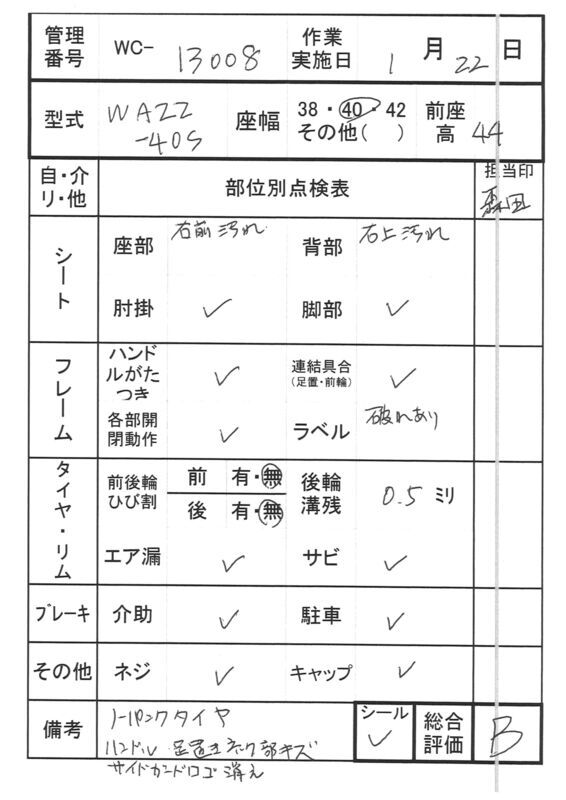 管理番号 WC- 13008 作業実施日 1月22日
型式 WAZZ-40S 座幅 38・40・42 その他( ) 前座高 44
自・介リ・他 部位別点検表 担当印
シート 座部 右前汚れ 背部 右上汚れ
肘掛 ✓ 脚部 ✓
フレーム ハンドルがたつき ✓ 連結具合(足置・前輪) ✓
各部開閉動作 ✓ ラベル 破れあり
タイヤ・リム 前後輪ひび割 前 有・無 後輪溝残 0.5 ミリ
後 有・無
エア漏 ✓ サビ ✓
ブレーキ 介助 ✓ 駐車 ✓
その他 ネジ ✓ キャップ ✓
備考 ノーパンクタイヤ シール ✓ 総合評価 B
ハンドル 足置きネック部キズ
サイドガードロゴ消え